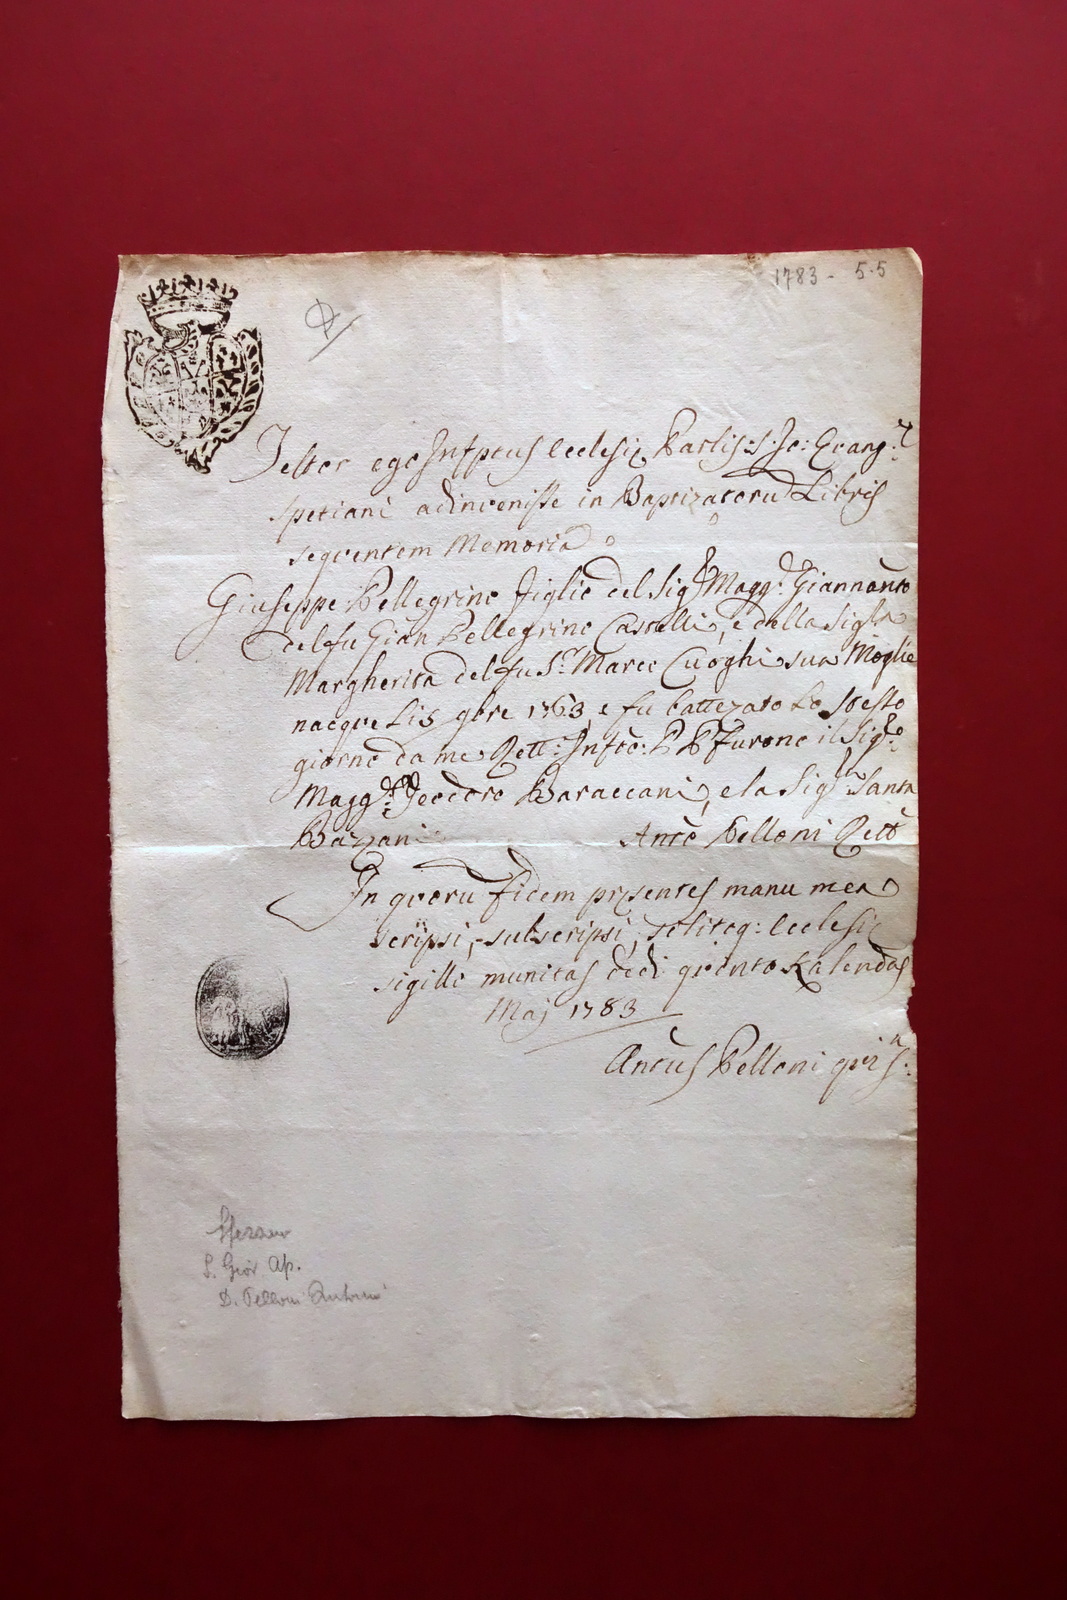 1783 - 5.5
Testor ego Infptus Ecclesiæ Parlis: S: Jo: Evang:
Spetiani adinvenisse in Baptizatoru Libris
sequentem Memoria
Giuseppe Pellegrino figlio del Sig Magg: Giannanto
del fu Gian Pellegrino Castelli, e della Sigra
Margherita del fu Sr Marco Cuoghi sua Moglie
nacque li 9bre 1763, e fu battezato lo stesso
giorno da me Rett: Infto: P P furono il Sigre
Magg: Teodoro Baraccani, e la Sigra Santa
Bazzani Anto Pelloni Rett
In quoru fidem præsentes manu mea
scripsi, subscripsi, solitoq: Ecclesiæ
sigillo munitas dedi quinto Kalendas
Maj 1783
Antus Pelloni qui S:
S. Giov Ap.
D. Pelloni Antonio